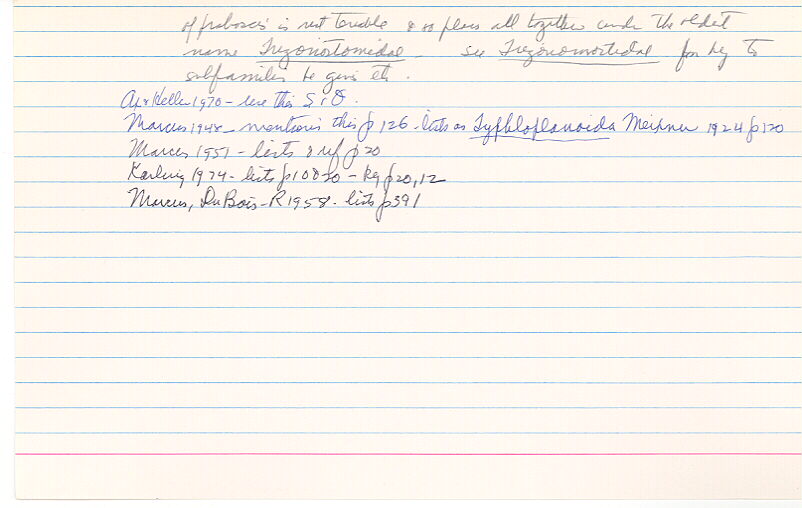 of proboscis is not tenable & so places all together under the oldest
name Trigonostomidae see Trigonostomidae for key to
subfamilies he gives etc.
Ax & Heller 1970 - use this S & O.
Marcus 1948 - mentions this p 126 - lists as Typhloplanoida Meixner 1924 p 120
Marcus 1951 - lists & ref p 20
Karling 1974 - lists p 10 & 20 - key p 20, 12
Marcus, DuBois-R 1958 - lists p 391